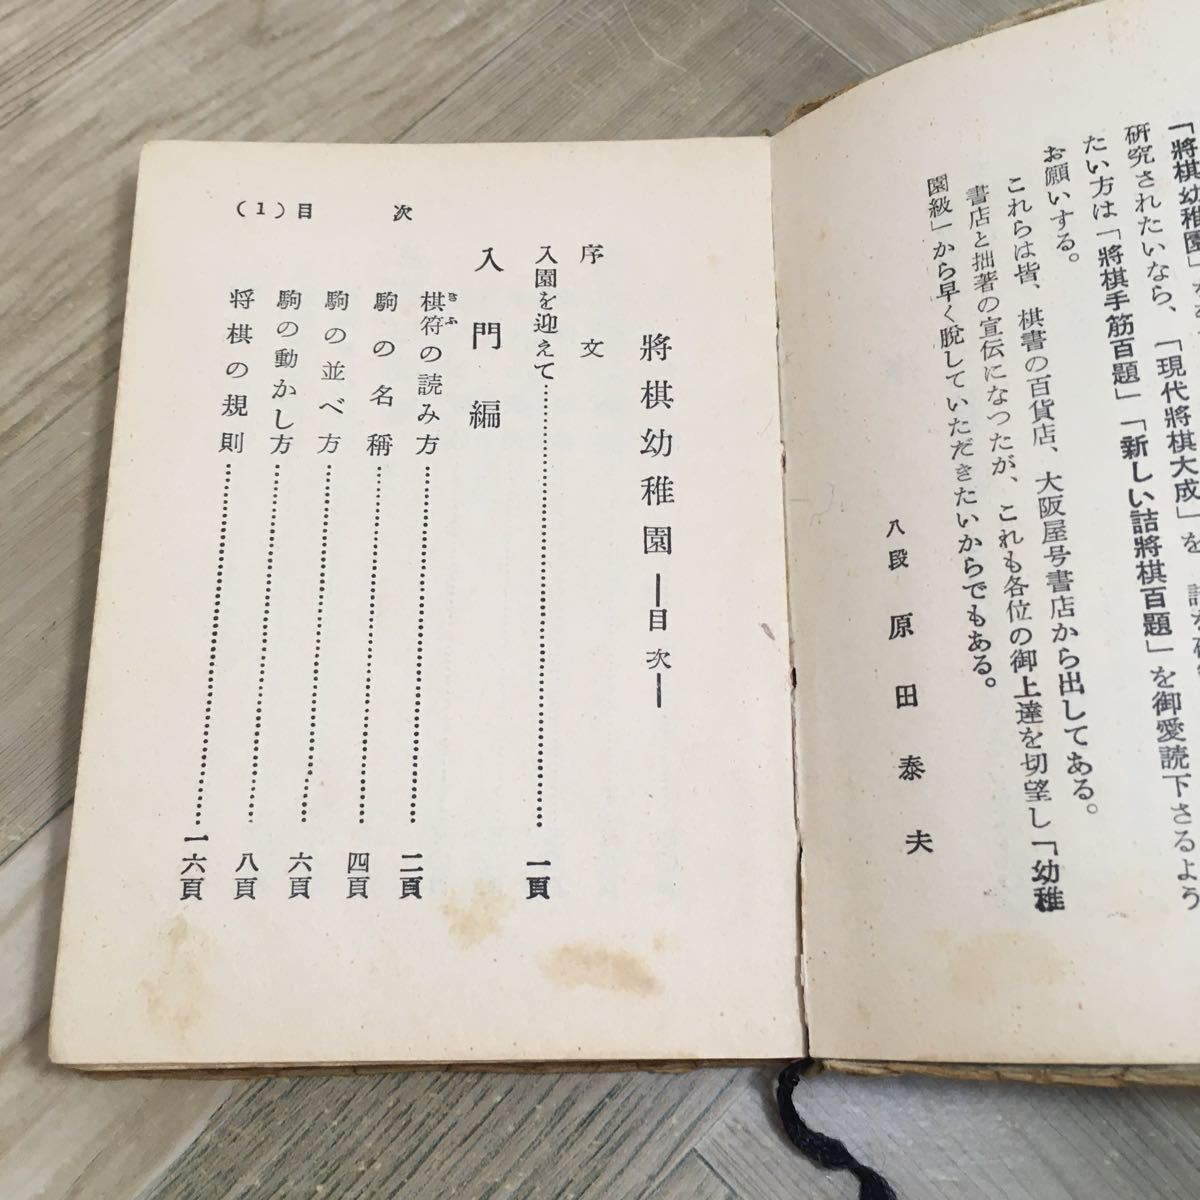 「將棋幼稚園」
研究されたいなら、「現代將棋大成」を
たい方は「將棋手筋百題」「新しい詰將棋百題」を御愛読下さるよう
お願いする。
これらは皆、棋書の百貨店、大阪屋号書店から出してある。
書店と拙著の宣伝になつたが、これも各位の御上達を切望し「幼稚
園級」から早く脱していただきたいからでもある。
八段 原田泰夫
將棋幼稚園―目次―
序文
入園を迎えて……………一頁
入門編
棋符の読み方……………二頁
きふ
駒の名稱……………四頁
駒の並べ方……………六頁
駒の動かし方……………八頁
将棋の規則……………一六頁
(1)目次